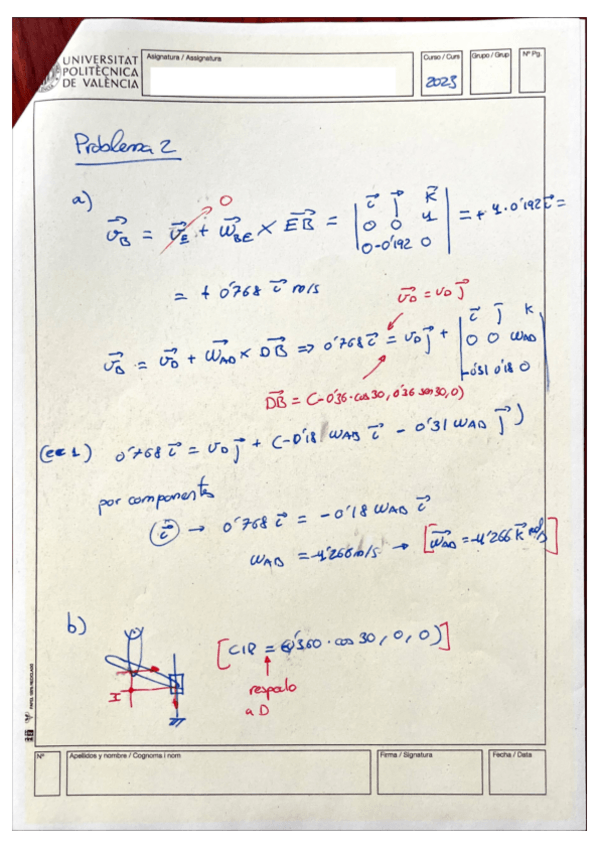 UNIVERSITAT
POLITÈCNICA
DE VALÈNCIA
Asignatura / Assignatura
Curso / Curs
2023
Grupo / Grup
Nº Pg.
Problema 2
a)
0
v⃗_B = v⃗_E + ω⃗_BE × EB⃗ = | i⃗ j⃗ k⃗ | 0 0 4 | 0 -0'192 0 | = + 4·0'192 i⃗ =
= + 0'768 i⃗ m/s
v⃗_D = v_D j⃗
v⃗_B = v⃗_D + ω⃗_AD × DB⃗ ⇒ 0'768 i⃗ = v_D j⃗ + | i⃗ j⃗ k | 0 0 ω_AD | -0'31 0'18 0 |
DB⃗ = (-0'36·cos 30, 0'36 sen 30, 0)
(ec 1) 0'768 i⃗ = v_D j⃗ + (-0'18 ω_AB i⃗ - 0'31 ω_AB j⃗)
por componentes
i⃗ → 0'768 i⃗ = -0'18 ω_AD i⃗
ω_AB = -4'266 m/s → [ω⃗_AD = -4'266 k⃗ rad/s]
b)
[CIR = (-0'360·cos 30, 0, 0)]
I
respecto
a D
PAPEL 100% RECICLADO
Nº
Apellidos y nombre / Cognoms i nom
Firma / Signatura
Fecha / Data